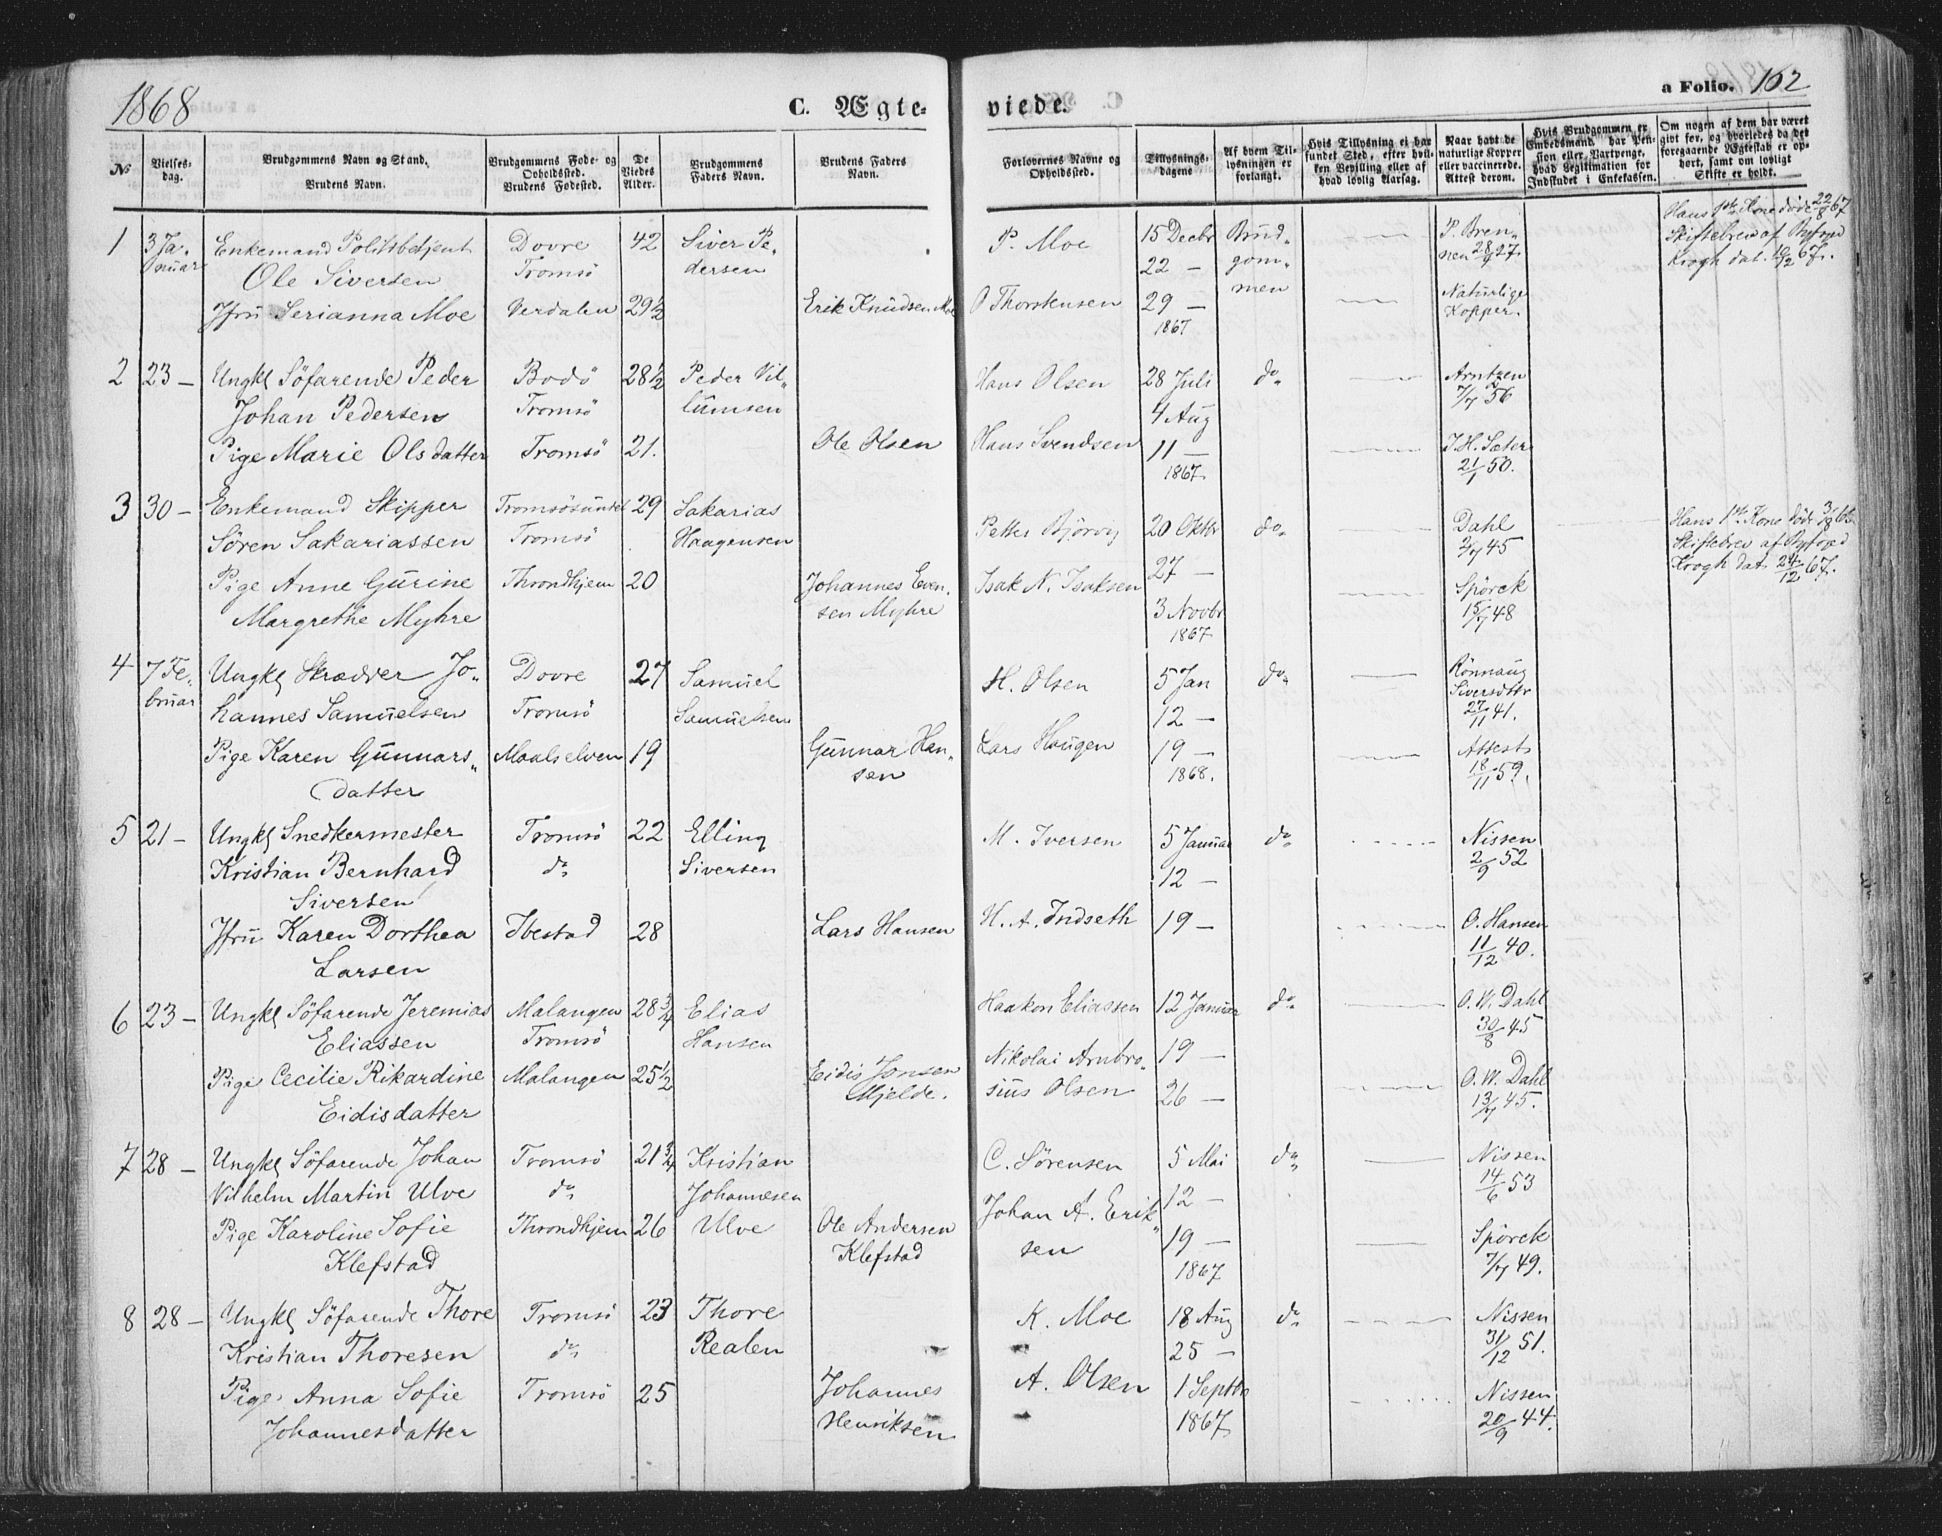 1868
C. Ægte-
viede.
a Folio. 162
№
Vielses-
dag.
Brudgommens Navn og Stand.
Brudens Navn.
Brudgommens Føde- og
Opholdssted.
Brudens Fødested.
De
Viedes
Alder.
Brudgommens
Faders Navn.
Brudens Faders
Navn.
Forlovernes Navne og
Opholdssted.
Tillysnings-
dagens
Af hvem Til-
lysningen er
forlangt.
Hvis Tillysning ei har
fundet Sted, efter hvil-
ken Bevilling eller af
hvad lovlig Aarsag.
Naar havt de
naturlige Kopper
eller vaccinerede.
Attest derom.
Hvis Brudgommen er
Embedsmand, har Pen-
sion eller Vartpenge,
hvad Legitimation for
Indskudet i Enkekassen.
Om nogen af dem har været
gift før, og hvorledes da det
foregaaende Ægteskab er op-
hørt, samt om lovligt
Skifte er holdt.
1 3 Ja- Enkemand Politibetjent Dovre 42 Siver Pe- P. Moe 15 Decbr Brud- P. Bren- Hans 1ste Kone døde 22/8 67
nuar Ole Siversen Tromsö dersen 22 — gom- nen 28/9 27. Skiftebrev af Byfoged
men Krogh dat. 10/12 67.
Jfru Serianna Moe Verdalen 29½ Erik Knudsen Moe O Thorstensen 29 — Naturlige
1867 Kopper.
2 23 — Ungkl Söfarende Peder Bodö 28½ Peder Vil- Hans Olsen 28 Juli do Arntzen
Johan Pedersen Tromsö lumsen 4 Aug 7/7 56
Pige Marie Olsdatter Tromsö 21. Ole Olsen Hans Svendsen 11 — J. H. Sæter
1867. 21/1 50.
3 30 — Enkemand Skipper Tromsösundet 29 Sakarias Petter Björvig 20 Oktbr do Dahl Hans 1ste Kone døde
Sören Sakariassen Tromsö Haagensen 27 — 2/7 45 Skiftebrev af Byfoged
Pige Anne Gurine Throndhjem 20 Johannes Even- Isak N. Isaksen Spörck Krogh dat. 24/12 67.
Margrethe Myhre sen Myhre 3 Novbr 15/7 48
1867
4 7 Fe- Ungkl Skrædder Jo- Dovre 27 Samuel H. Olsen 5 Jan do Rönnaug
bruar hannes Samuelsen Tromsö Samuelsen 12 — Siversdtr
27/11 41.
Pige Karen Gunnars- Maalselven 19 Gunnar Han- Lars Haugen 19 — Attest
datter sen 1868. 18/11 59.
5 21 — Ungkl Snedkermester Tromsö 22 Elling M. Iversen 5 Januar do Nissen
Kristian Bernhard do Siversen 12 — 2/9 52
Siversen
Jfru Karen Dorthea Ibestad 28 Lars Hansen H. A. Indseth 19 — O. Hansen
Larsen 11/12 40.
6 23 — Ungkl Söfarende Jeremias Malangen 28¾ Elias Haakon Eliassen 12 Januar do O. W. Dahl
Eliassen Tromsö Hansen 19 — 30/8 45
Pige Cecilie Rikardine Malangen 25½ Eidis Jonsen Nikolai Ambro- 26 — O. W. Dahl
Eidisdatter Mjelde. sius Olsen 13/7 45.
7 28 — Ungkl Söfarende Johan Tromsö 21¾ Kristian C. Sörensen 5 Mai do Nissen
Vilhelm Martin Ulve do Johannesen 12 — 14/6 53
Pige Karoline Sofie Throndhjem 26 Ulve Ole Andersen Johan A. Erik- 19 — Spörck
Klefstad Klefstad sen 1867 7/7 49.
8 28 — Ungkl Söfarende Thore Tromsö 23 Thore K. Moe 18 Aug do Nissen
Kristian Thoresen do Realen 25 — 31/12 51.
Pige Anna Sofie Tromsö 25 Johannes A. Olsen 1 Septbr Nissen
Johannesdatter Henriksen 1867. 20/9 44.